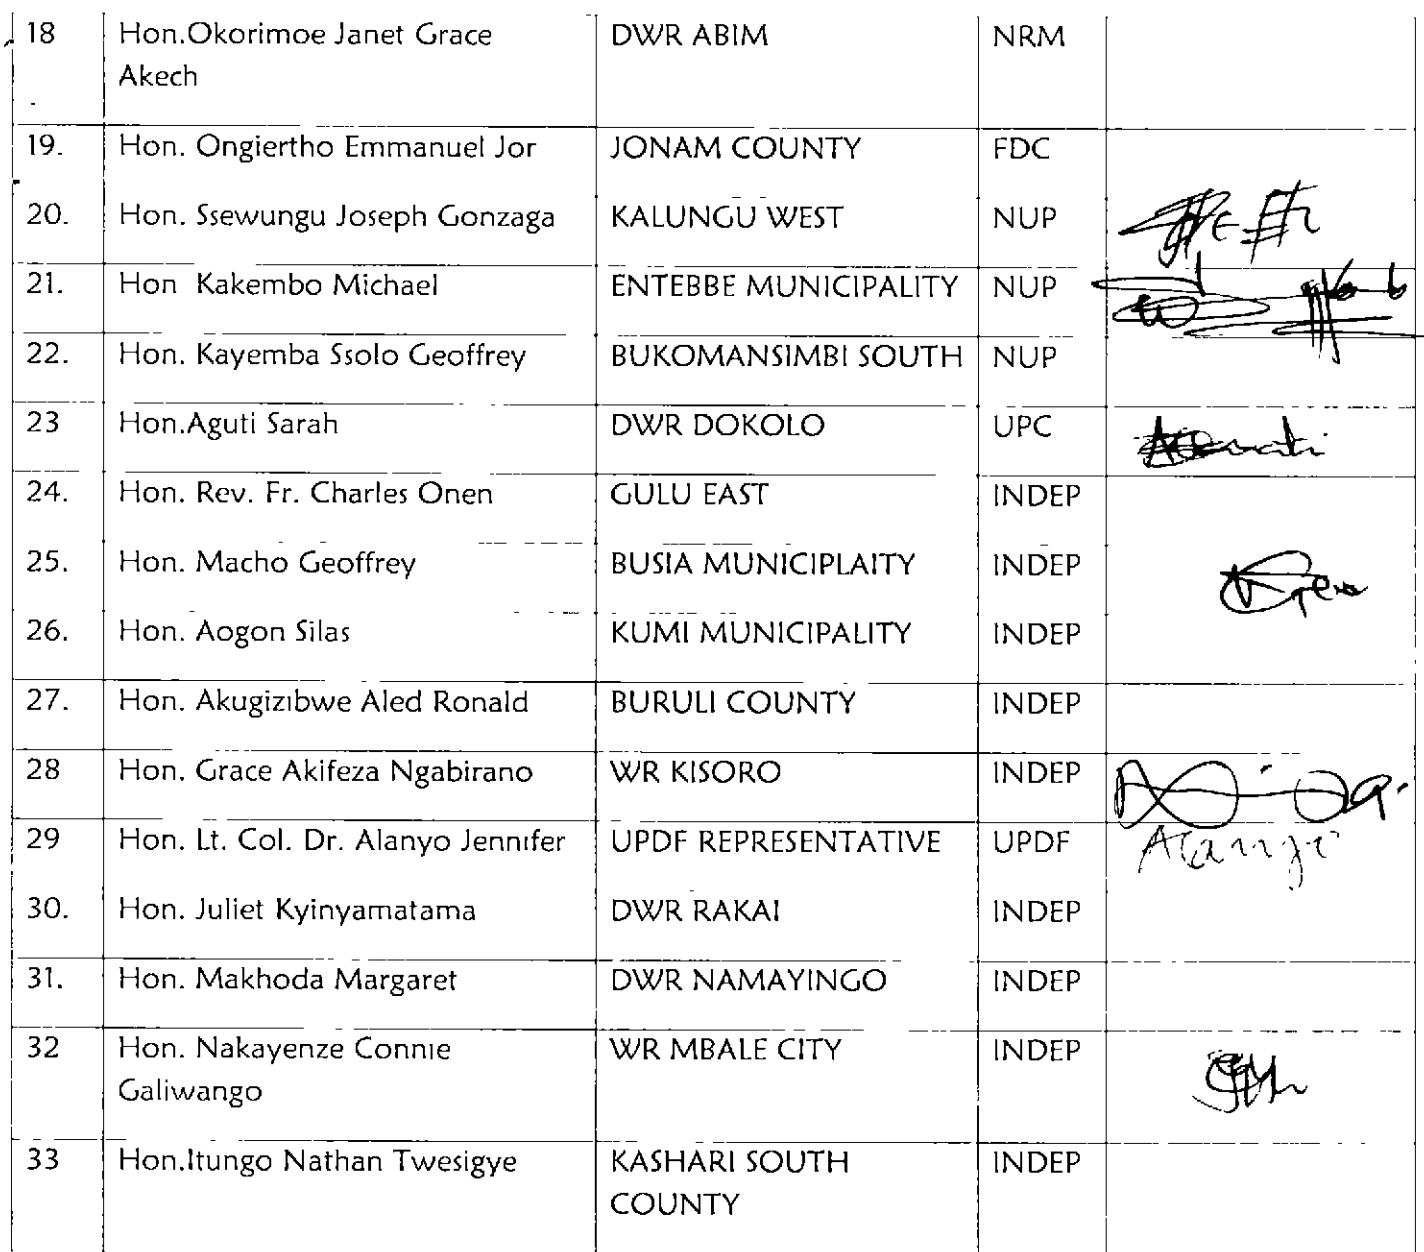 18 Hon.Okorimoe Janet Grace DWR ABIM NRM
Akech
19. Hon. Ongiertho Emmanuel Jor JONAM COUNTY FDC
20. Hon. Ssewungu Joseph Gonzaga KALUNGU WEST NUP
21. Hon Kakembo Michael ENTEBBE MUNICIPALITY NUP
22. Hon. Kayemba Ssolo Geoffrey BUKOMANSIMBI SOUTH NUP
23 Hon.Aguti Sarah DWR DOKOLO UPC
24. Hon. Rev. Fr. Charles Onen GULU EAST INDEP
25. Hon. Macho Geoffrey BUSIA MUNICIPLAITY INDEP
26. Hon. Aogon Silas KUMI MUNICIPALITY INDEP
27. Hon. Akugizibwe Aled Ronald BURULI COUNTY INDEP
28 Hon. Grace Akifeza Ngabirano WR KISORO INDEP
29 Hon. Lt. Col. Dr. Alanyo Jennifer UPDF REPRESENTATIVE UPDF
30. Hon. Juliet Kyinyamatama DWR RAKAI INDEP
31. Hon. Makhoda Margaret DWR NAMAYINGO INDEP
32 Hon. Nakayenze Connie WR MBALE CITY INDEP
Galiwango
33 Hon.Itungo Nathan Twesigye KASHARI SOUTH INDEP
COUNTY